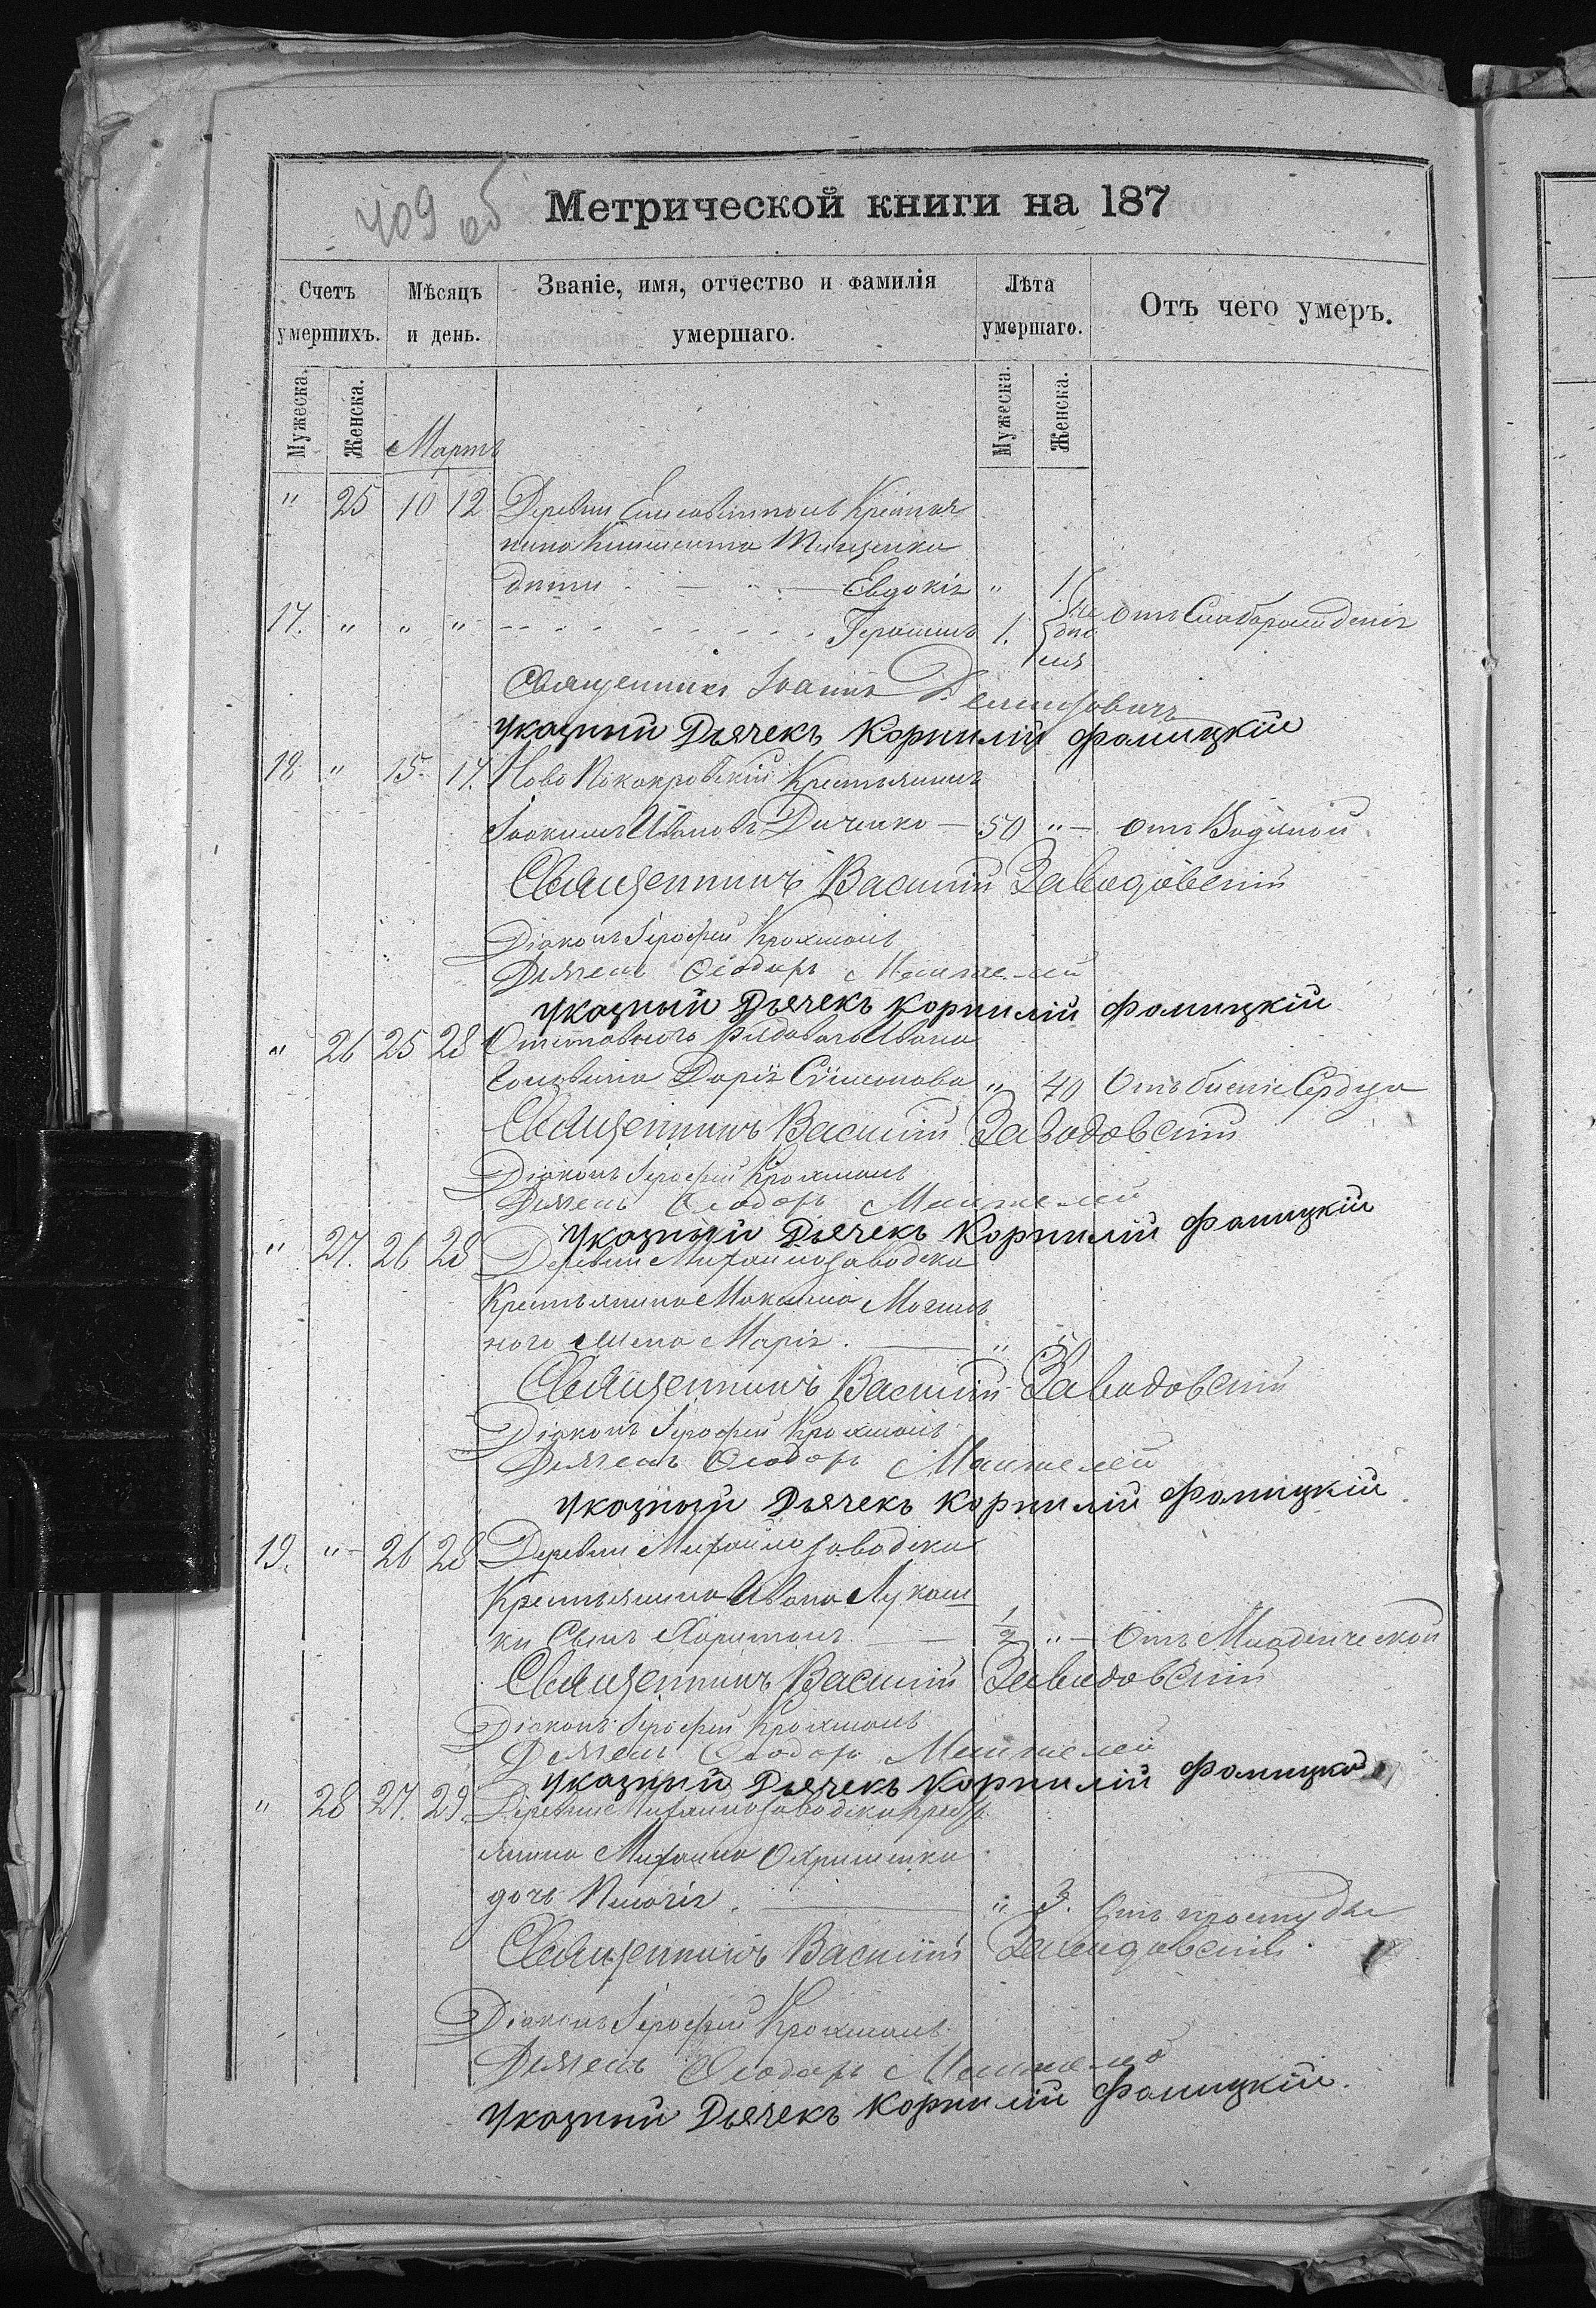 409 об
Метрической книги на 187
Счетъ умершихъ.
Мѣсяцъ и день.
Званіе, имя, отчество и фамилія умершаго.
Лѣта умершаго.
Отъ чего умеръ.
Мужеска. Женска.
Мартъ
Мужеска. Женска.
" 25 10 12 Деревни
дѣти — Евдокія " 1.
17. " " " Герасимъ 1. отъ Слаборожденія
Священникъ Іоаннъ
Указный Дьячекъ Корнилій Фомицкій
18 " 15. 17. Ново Крестьянинъ
Іоакимъ Ивановъ — 50 " — отъ Водяной
Священникъ Василій Заводовскій
Діаконъ Іерофей Крохмаль
Дьячекъ Ѳеодоръ Манжелей
Указный Дьячекъ Корнилій Фомицкій
" 26 25 28 Отставнаго рядоваго Ивана
Дарія Сѵмеонова " 40 Отъ біенія Сердца
Священникъ Василій Заводовскій
Діаконъ Іерофей Крохмаль
Дьячекъ Ѳеодоръ Манжелей
Указный Дьячекъ Корнилій Фомицкій
" 27. 26 28 Деревни Михайлозаводска
Крестьянина Максима Могиль
ного жена Марія. — "
Священникъ Василій Заводовскій
Діаконъ Іерофей Крохмаль
Дьячекъ Ѳеодоръ Манжелей
Указный Дьячекъ Корнилій Фомицкій
19. " 26 28 Деревни Михайлозаводска
Крестьянина Ивана Лукаш
ки Сынъ Харитонъ — 1/2 " — Отъ Младенческой
Священникъ Василій Заводовскій
Діаконъ Іерофей Крохмаль
Дьячекъ Ѳеодоръ Манжелей
Указный Дьячекъ Корнилій Фомицкій
" 28 27. 29. Деревни Михайлозаводска Кресть
янина Михаила Охрименка
дочь Пелагія. — " 3. Отъ простуды
Священникъ Василій Заводовскій.
Діаконъ Іерофей Крохмаль
Дьячекъ Ѳеодоръ Манжелей
Указный Дьячекъ Корнилій Фомицкій.